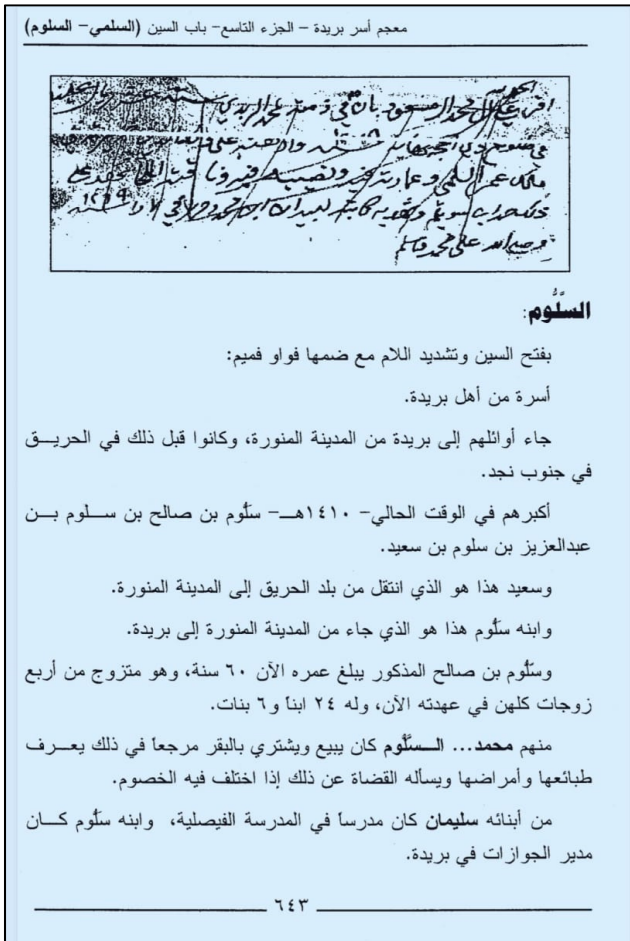 معجم أسر بريدة – الجزء التاسع– باب السين (السلمي– السلوم)
السَّلُّوم:
بفتح السين وتشديد اللام مع ضمها فواو فميم:
أسرة من أهل بريدة.
جاء أوائلهم إلى بريدة من المدينة المنورة، وكانوا قبل ذلك في الحريـــق
في جنوب نجد.
أكبرهم في الوقت الحالي– ١٤١٠هــ– سلُّوم بن صالح بن ســلوم بــن
عبدالعزيز بن سلوم بن سعيد.
وسعيد هذا هو الذي انتقل من بلد الحريق إلى المدينة المنورة.
وابنه سلُّوم هذا هو الذي جاء من المدينة المنورة إلى بريدة.
وسلُّوم بن صالح المذكور يبلغ عمره الآن ٦٠ سنة، وهو متزوج من أربع
زوجات كلهن في عهدته الآن، وله ٢٤ ابناً و٦ بنات.
منهم محمد... الــسلُّوم كان يبيع ويشتري بالبقر مرجعاً في ذلك يعــرف
طبائعها وأمراضها ويسأله القضاة عن ذلك إذا اختلف فيه الخصوم.
من أبنائه سليمان كان مدرساً في المدرسة الفيصلية، وابنه سلُّوم كـــان
مدير الجوازات في بريدة.
٦٤٣